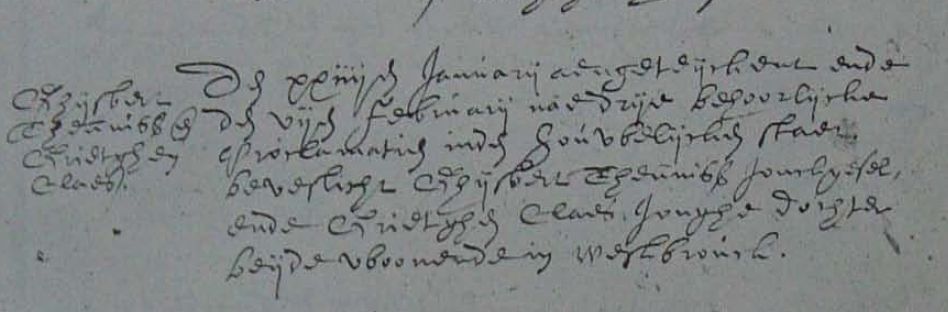 Ghijsbert
Theuniss e͂
Grietghen
Claes.
De͂ xxiiije͂ Januarij aengeteijckent ende
de͂ vije͂ Februarij nae drije behoorlijcke
Proclamatie͂ inde͂ houwelijcke͂ staet
bevesticht Ghijsbert Theuniss Jonckgesel,
ende Grietghe͂ Claes Jonghe dochter
beijde woonende in Westbrouck.